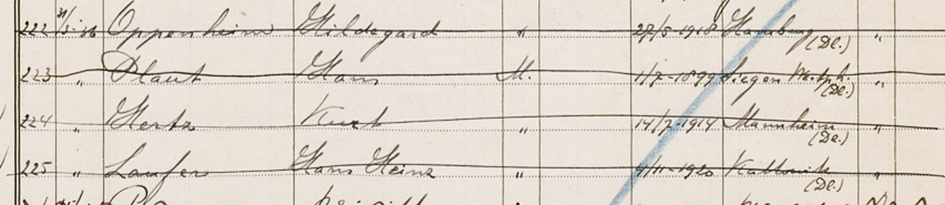 222 31/5-36 Oppenheim Hildegard " 27/5-1918 Hamburg (Dl.) "
223 " Plaut Hans M. 1/7-1899 Siegen Westph. (Dl.) "
224 " Hertz Kurt " 14/7-1914 Mannheim (Dl.) "
225 " Laufer Hans Heinz " 4/11-1920 Kattowitz (Dl.) "